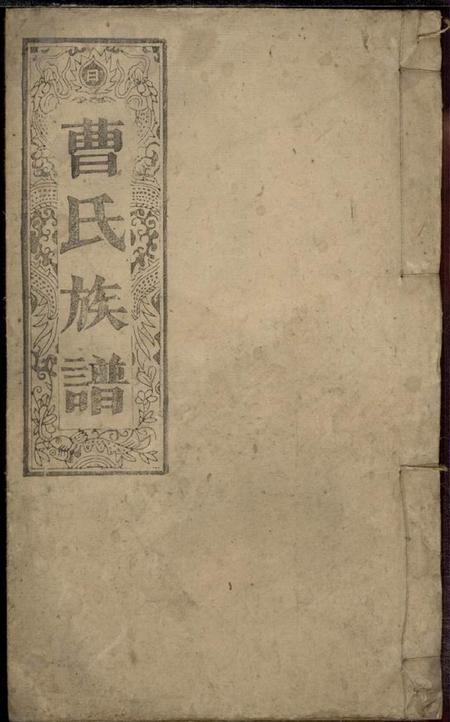 日
曹氏族譜